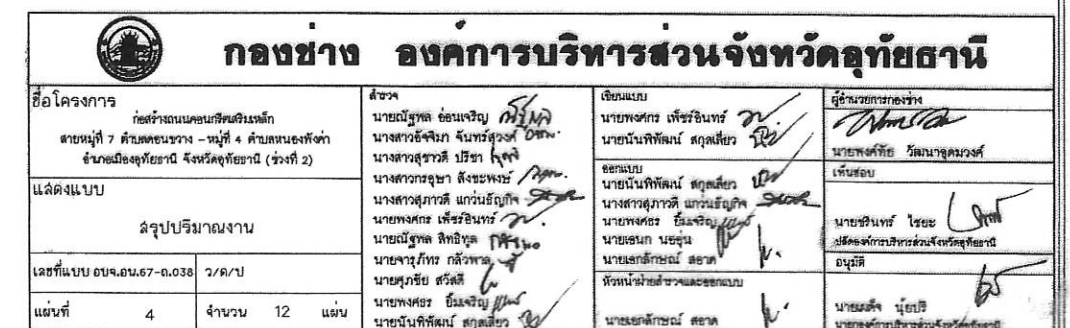 กองช่าง องค์การบริหารส่วนจังหวัดอุทัยธานี
ชื่อโครงการ
ก่อสร้างถนนคอนกรีตเสริมเหล็ก
สายหมู่ที่ 7 ตำบลดอนขวาง - หมู่ที่ 4 ตำบลหนองพังค่า
อำเภอเมืองอุทัยธานี จังหวัดอุทัยธานี (ช่วงที่ 2)
แสดงแบบ
สรุปปริมาณงาน
เลขที่แบบ อบจ.อน.67-ถ.038 ว/ด/ป
แผ่นที่ 4 จำนวน 12 แผ่น
สำรวจ
นายณัฐพล อ่อนเจริญ
นางสาวอัจจิมา จันทร์สุวงศ์
นางสาวสุชาวดี ปรีชา
นางสาวกรอุษา สังขะพงษ์
นางสาวสุภาวดี แกว่นธัญกิจ
นายพงศกร เพ็ชร์อินทร์
นายณัฐพล สิทธิทูล
นายจารุภัทร กลัวพาล
นายศุภชัย สวัสดี
นายพงศธร ยิ้มเจริญ
นายนันพิพัฒน์ สกุลเลี่ยว
เขียนแบบ
นายพงศกร เพ็ชร์อินทร์
นายนันพิพัฒน์ สกุลเลี่ยว
ออกแบบ
นายนันพิพัฒน์ สกุลเลี่ยว
นางสาวสุภาวดี แกว่นธัญกิจ
นายพงศธร ยิ้มเจริญ
นายเอนก นอขุ่น
นายเอกลักษณ์ สอาด
หัวหน้าฝ่ายสำรวจและออกแบบ
นายเอกลักษณ์ สอาด
ผู้อำนวยการกองช่าง
นายพงศ์ทัย วัฒนาอุดมวงศ์
เห็นชอบ
นายชรินทร์ ไชยะ
ปลัดองค์การบริหารส่วนจังหวัดอุทัยธานี
อนุมัติ
นายเผด็จ นุ้ยปรี
นายกองค์การบริหารส่วนจังหวัดอุทัยธานี